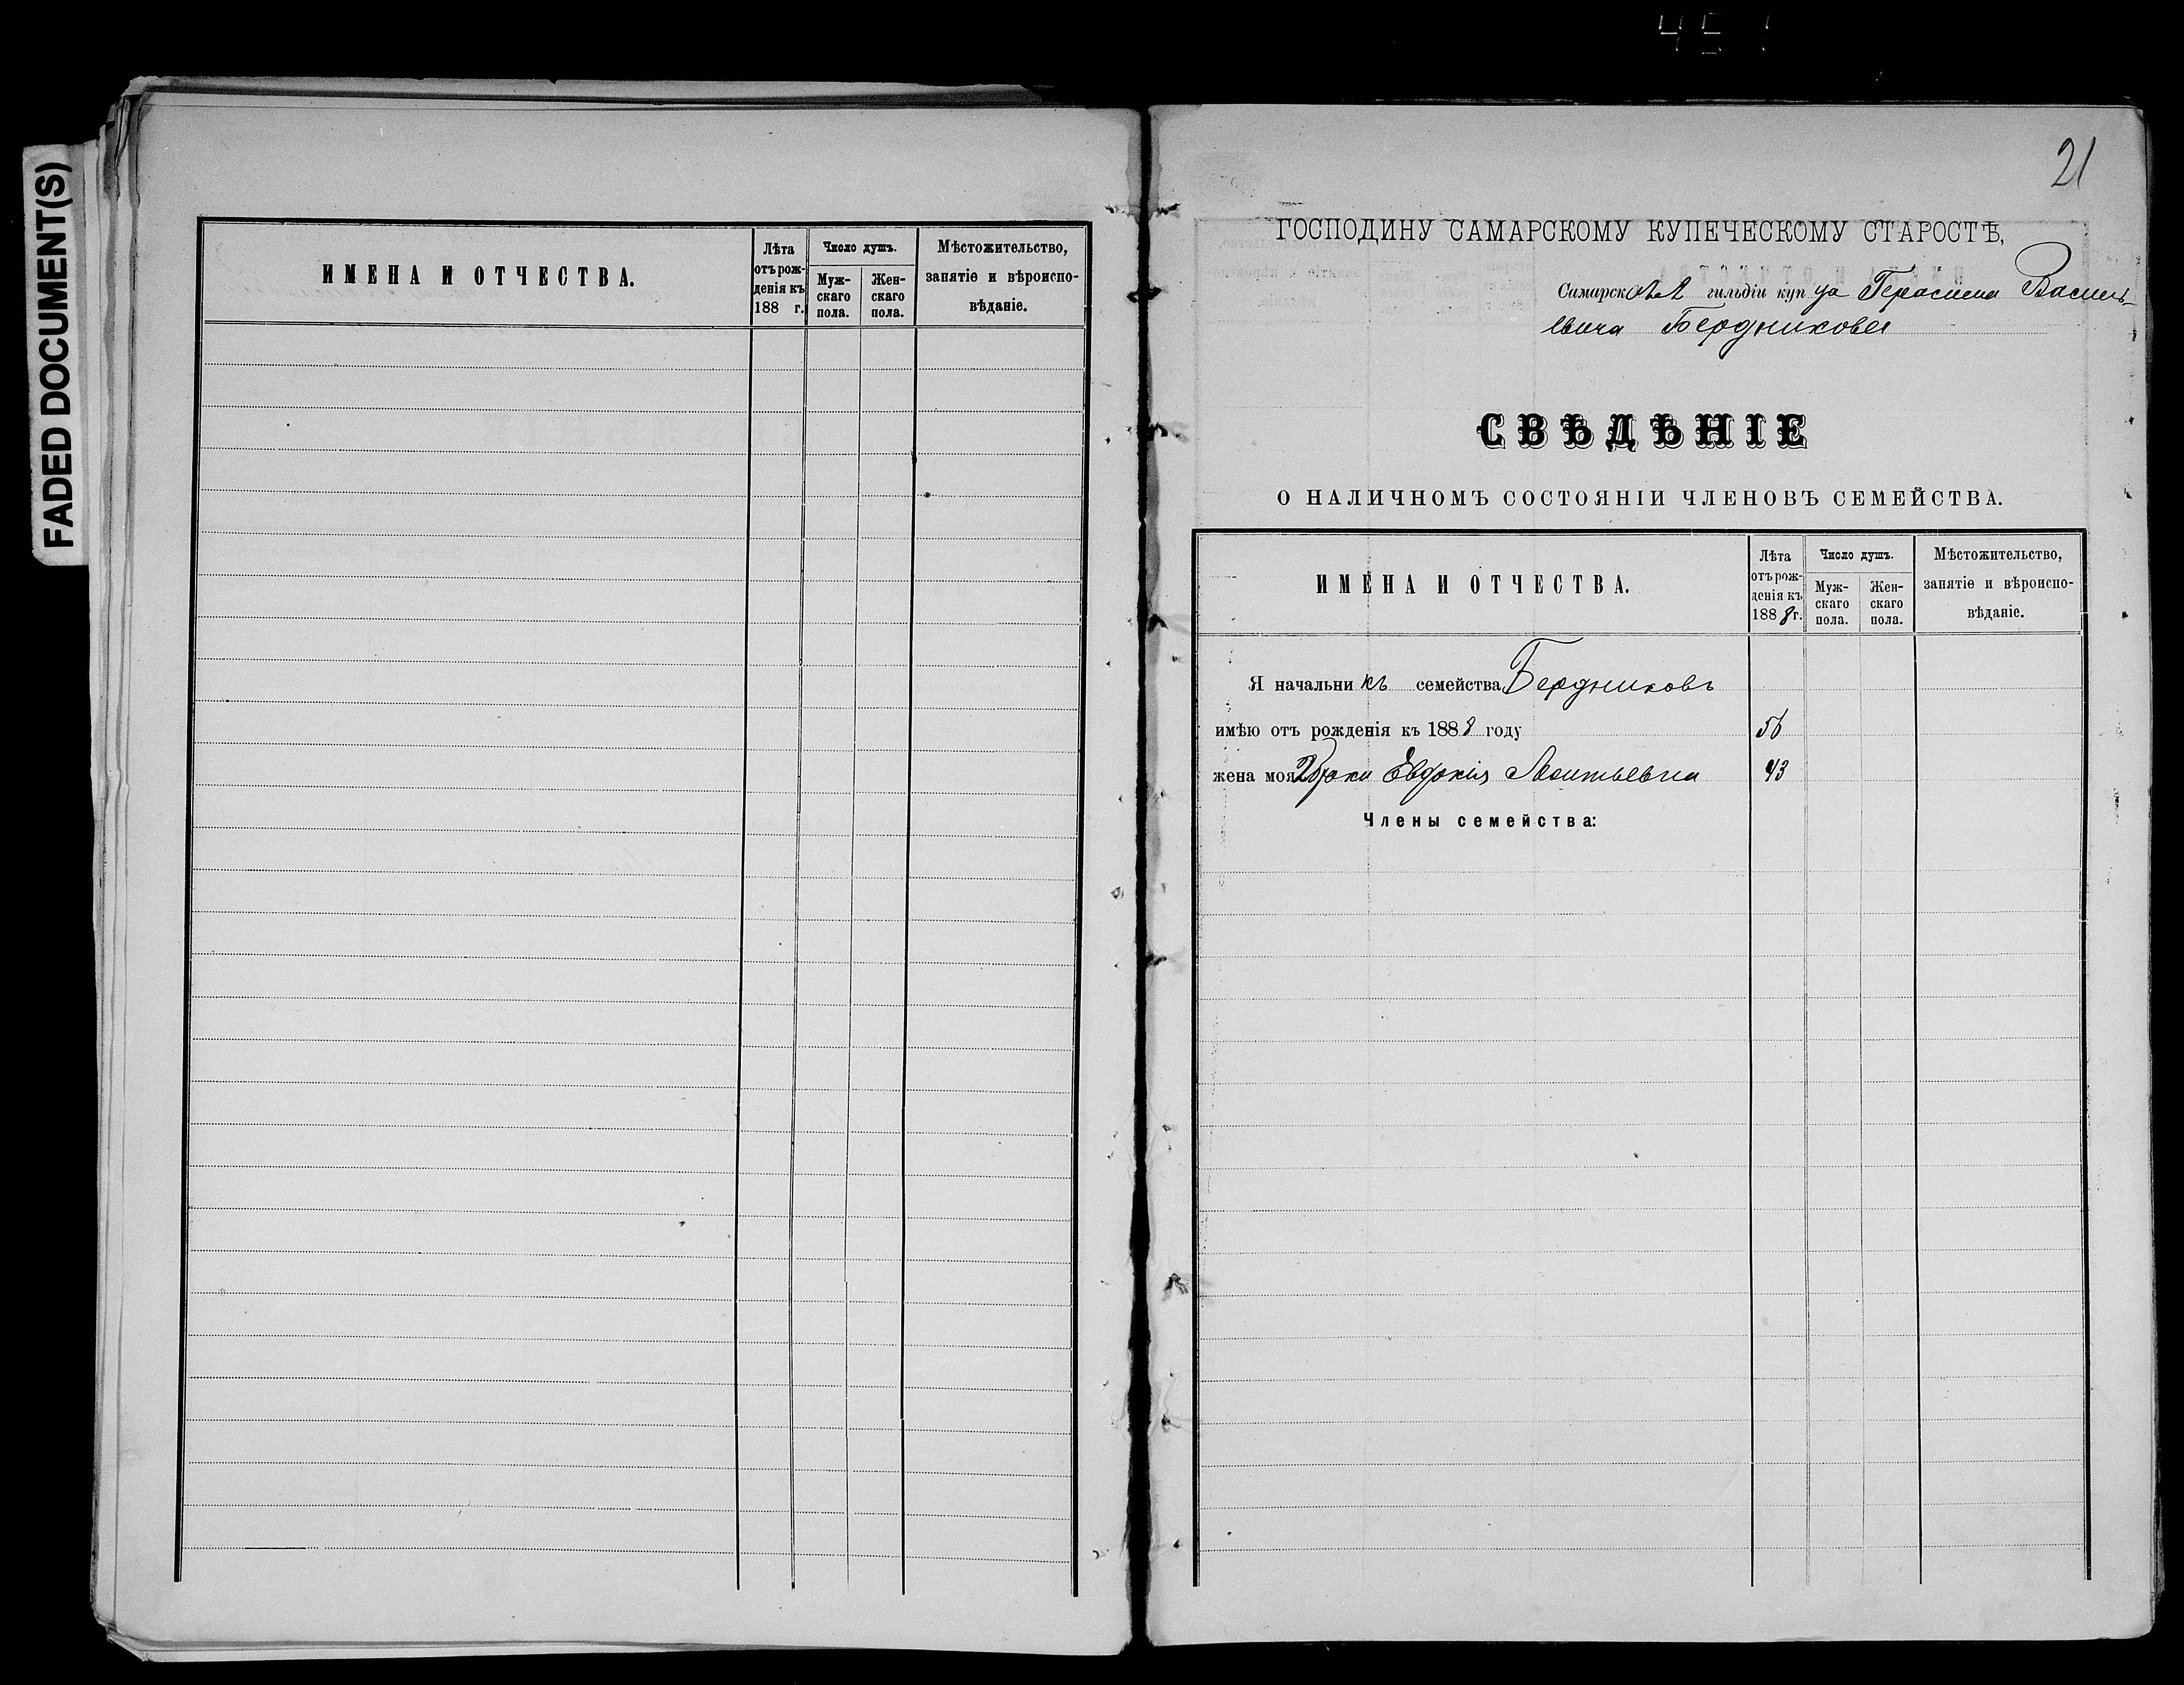 FADED DOCUMENT(S)
ИМЕНА И ОТЧЕСТВА.
Лѣта отъ рож-
денія къ
188 г.
Число душъ.
Муж-
скаго
пола.
Жен-
скаго
пола.
Мѣстожительство,
занятіе и вѣроиспо-
вѣданіе.
21
ГОСПОДИНУ САМАРСКОМУ КУПЕЧЕСКОМУ СТАРОСТѢ,
Самарско гильдіи купца Герасима Василь-
евича Бердникова
СВѢДѢНІЕ
О НАЛИЧНОМЪ СОСТОЯНІИ ЧЛЕНОВЪ СЕМЕЙСТВА.
ИМЕНА И ОТЧЕСТВА.
Лѣта
отъ рож-
денія къ
1888 г.
Число душъ.
Муж-
скаго
пола.
Жен-
скаго
пола.
Мѣстожительство,
занятіе и вѣроиспо-
вѣданіе.
Я начальникъ семейства Бердниковъ
имѣю отъ рожденія къ 1888 году 56
жена моя Евдокія Леонтьевна 43
Члены семейства: